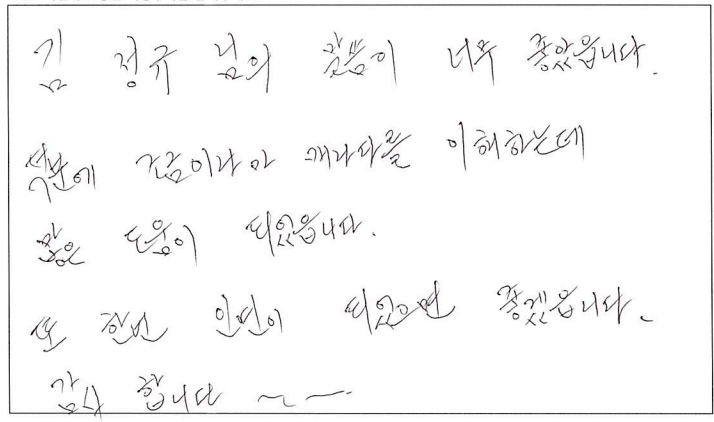 김 정규 님의 말씀이 너무 좋았읍니다.
덕분에 조금이나마 깨라다를 이해하는데
많은 도움이 되었읍니다.
또 한번 인연이 되었으면 좋겠읍니다.
감사 합니다 ~ —.